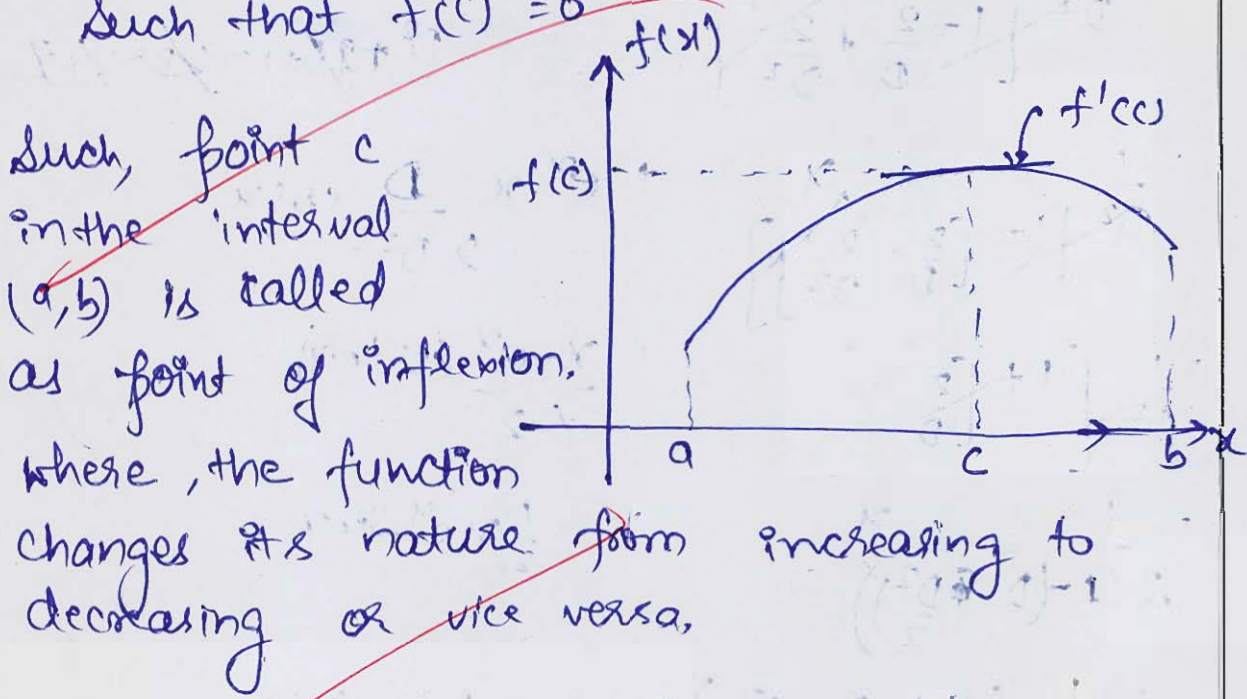 Such that f(c) = 0
f(x)
f'(c)
Such, point c
f(c)
in the interval
(a,b) is called
as point of inflexion.
a c b x
where, the function
changes its nature from increasing to
decreasing or vice versa,